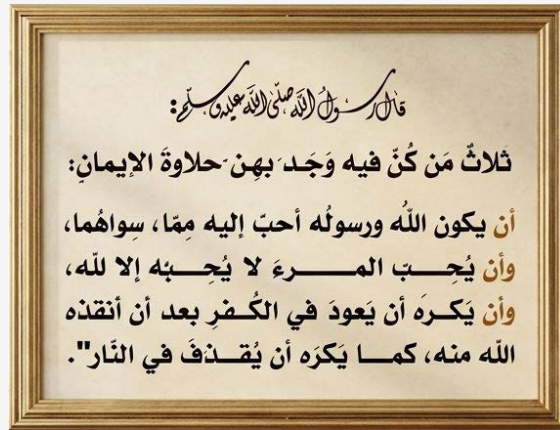 قال رسول الله صلّى الله عليه وسلّم:
ثلاثٌ مَن كُنّ فيه وَجَد بهِن حلاوةَ الإيمانِ:
أن يكون اللّه ورسولُه أحبّ إليه مِمّا، سِواهُما،
وأن يُحِـــب المـــــرءَ لا يُحِـــبّه إلا للّه،
وأن يَكـرَه أن يَعودَ في الكُـفرِ بعد أن أنقذه
اللّه منه، كمـــا يَكرَه أن يُقــذفَ في النّار".